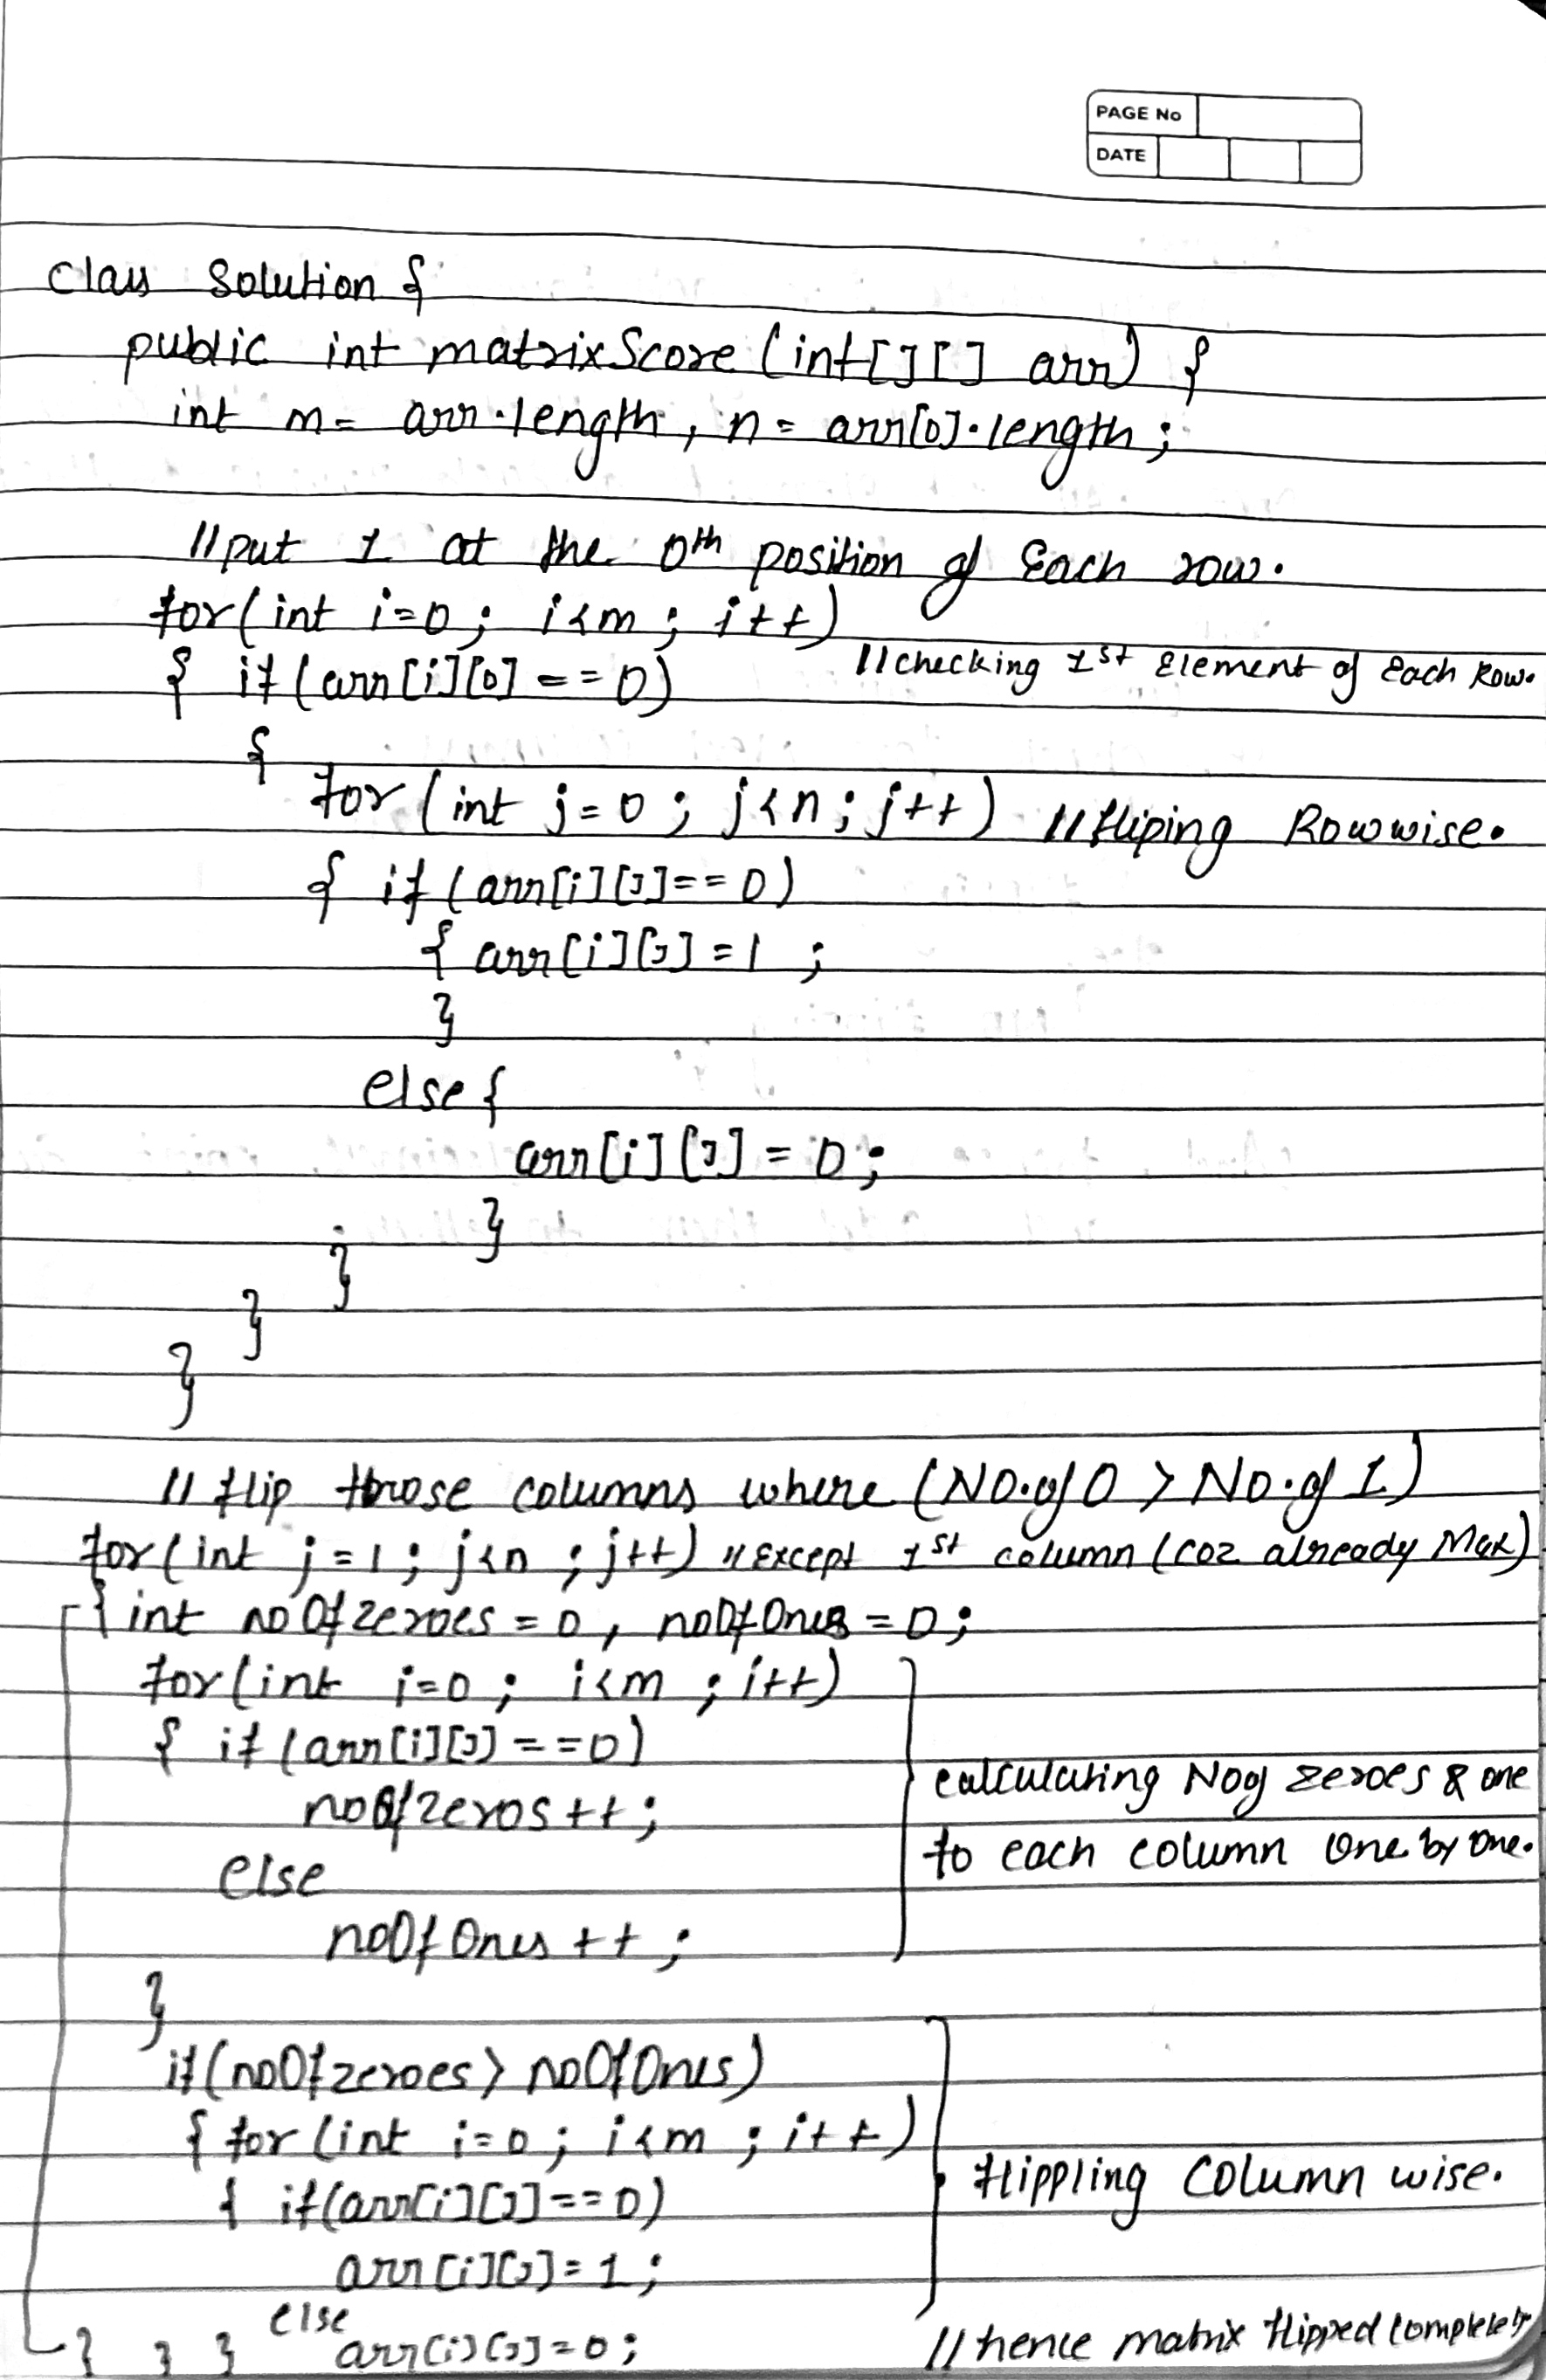 PAGE No
DATE
class Solution {
public int matrixScore (int[][] arr) {
int m = arr.length, n = arr[0].length;
//put 1 at the 0th position of Each row.
for(int i=0; i<m; i++)
{ if(arr[i][0]==0) //checking 1st Element of Each Row.
{
for(int j=0; j<n; j++) //fliping Rowwise.
{ if(arr[i][j]==0)
{ arr[i][j]=1;
}
else{
arr[i][j]=0;
}
}
}
}
// flip those columns where (No.of 0 > No.of 1)
for(int j=1; j<n; j++) //Except 1st column (coz already Max)
{ int noOfzeroes=0, noOfOnes=0;
for(int i=0; i<m; i++)
{ if(arr[i][j]==0)
noOfzeros++;
else
noOfOnes++;
}
calculating No of zeroes & one
to each column One by One.
if(noOfzeroes > noOfOnes)
{ for(int i=0; i<m; i++)
{ if(arr[i][j]==0)
arr[i][j]=1;
else
} } } arr[i][j]=0;
flippling Column wise.
// hence matrix flipped completely